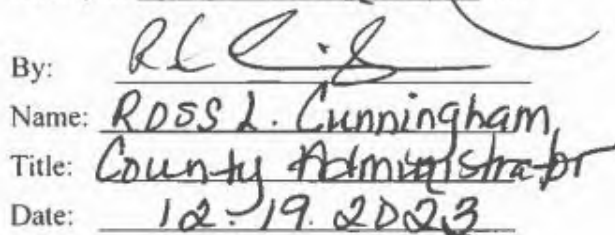 By:
Name: Ross L. Cunningham
Title: County Administrator
Date: 12-19.2023